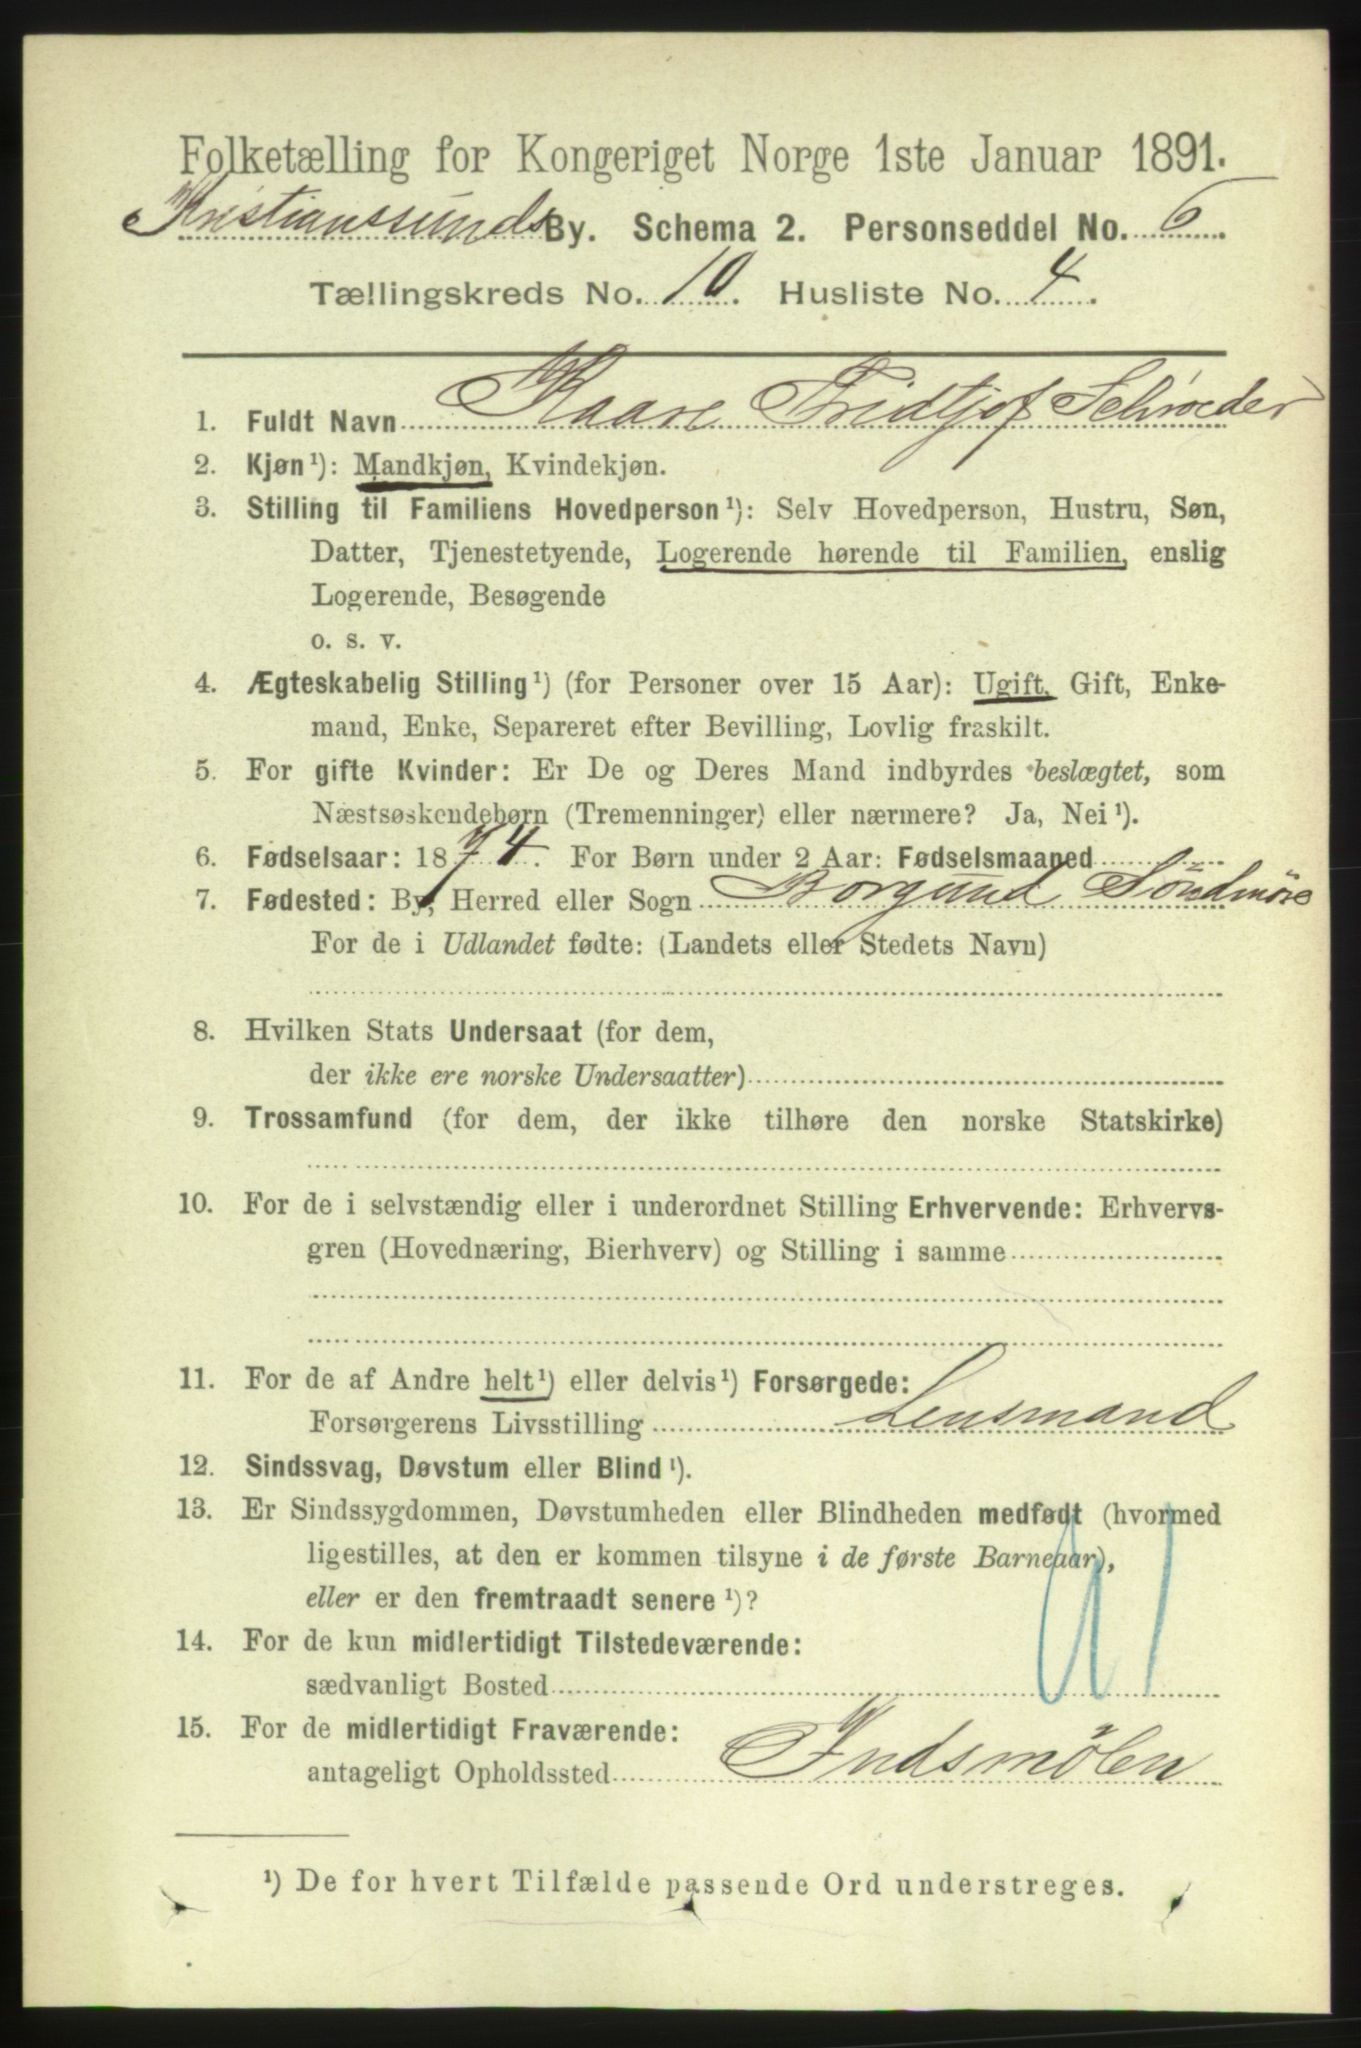 Folketælling for Kongeriget Norge 1ste Januar 1891.
Kristianssunds By. Schema 2. Personseddel No. 6.
Tællingskreds No. 10. Husliste No. 4.
1. Fuldt Navn Kaare Fridtjof Schrøeder
2. Kjøn¹): Mandkjøn, Kvindekjøn.
3. Stilling til Familiens Hovedperson¹): Selv Hovedperson, Hustru, Søn,
Datter, Tjenestetyende, Logerende hørende til Familien, enslig
Logerende, Besøgende
o. s. v.
4. Ægteskabelig Stilling¹) (for Personer over 15 Aar): Ugift, Gift, Enke-
mand, Enke, Separeret efter Bevilling, Lovlig fraskilt.
5. For gifte Kvinder: Er De og Deres Mand indbyrdes beslægtet, som
Næstsøskendebørn (Tremenninger) eller nærmere? Ja, Nei¹).
6. Fødselsaar: 1874. For Børn under 2 Aar: Fødselsmaaned
7. Fødested: By, Herred eller Sogn Borgund Söndmöre
For de i Udlandet fødte: (Landets eller Stedets Navn)
8. Hvilken Stats Undersaat (for dem,
der ikke ere norske Undersaatter)
9. Trossamfund (for dem, der ikke tilhøre den norske Statskirke)
10. For de i selvstændig eller i underordnet Stilling Erhvervende: Erhvervs-
gren (Hovednæring, Bierhverv) og Stilling i samme
11. For de af Andre helt¹) eller delvis¹) Forsørgede:
Forsørgerens Livsstilling Lensmand
12. Sindssvag, Døvstum eller Blind¹).
13. Er Sindssygdommen, Døvstumheden eller Blindheden medfødt (hvormed
ligestilles, at den er kommen tilsyne i de første Barneaar),
eller er den fremtraadt senere¹)?
14. For de kun midlertidigt Tilstedeværende:
sædvanligt Bosted
15. For de midlertidigt Fraværende:
antageligt Opholdssted Indsmölen
¹) De for hvert Tilfælde passende Ord understreges.